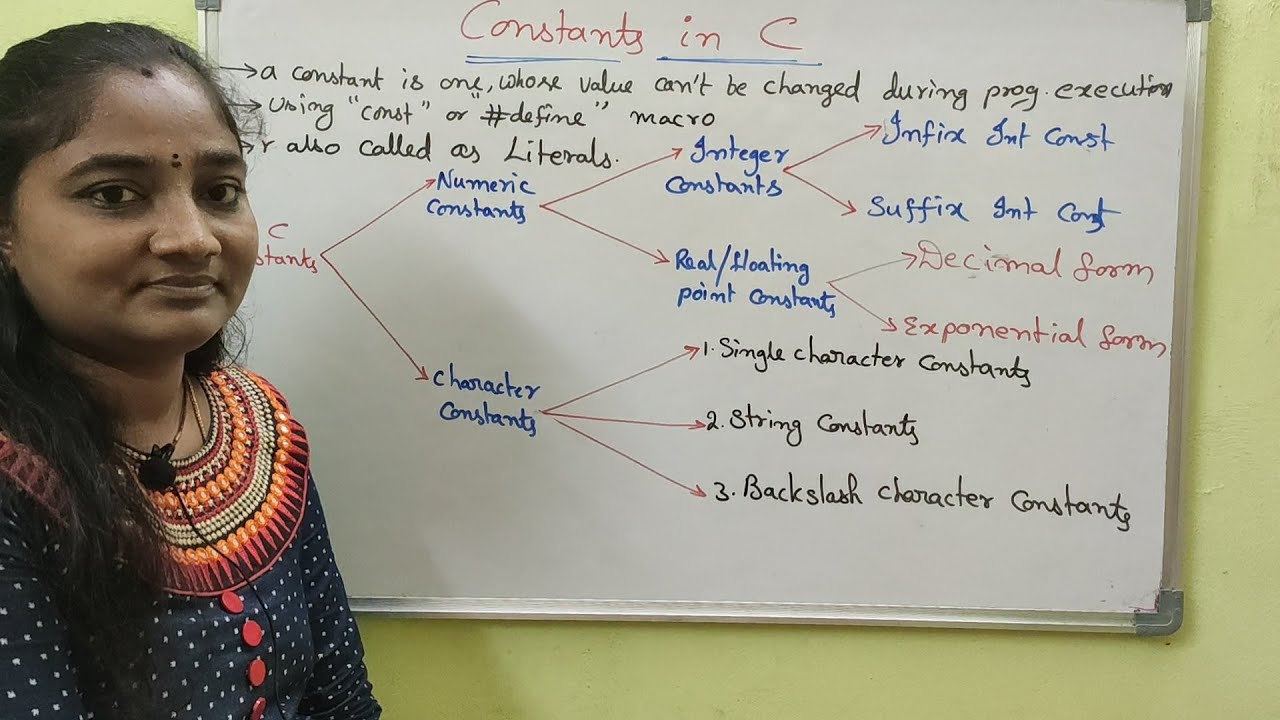 Constants in C
→a constant is one, whose value can't be changed during prog. execution
→Using "const" or "#define" macro
→r also called as Literals.
C
stants
Numeric
Constants
Integer
Constants
Infix Int Const
Suffix Int Const
Real/floating
point Constants
Decimal form
Exponential form
Character
Constants
1. Single character Constants
2. String Constants
3. Backslash character Constants